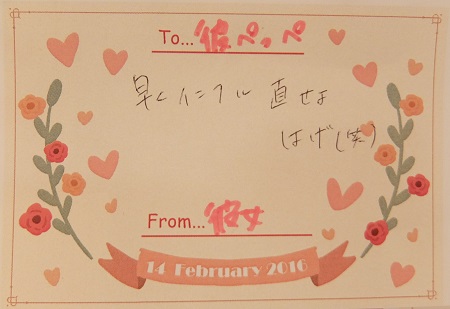 To... 彼ぺっぺ
早くインフル 直せよ
はげ(笑)
From... 彼女
14 February 2016